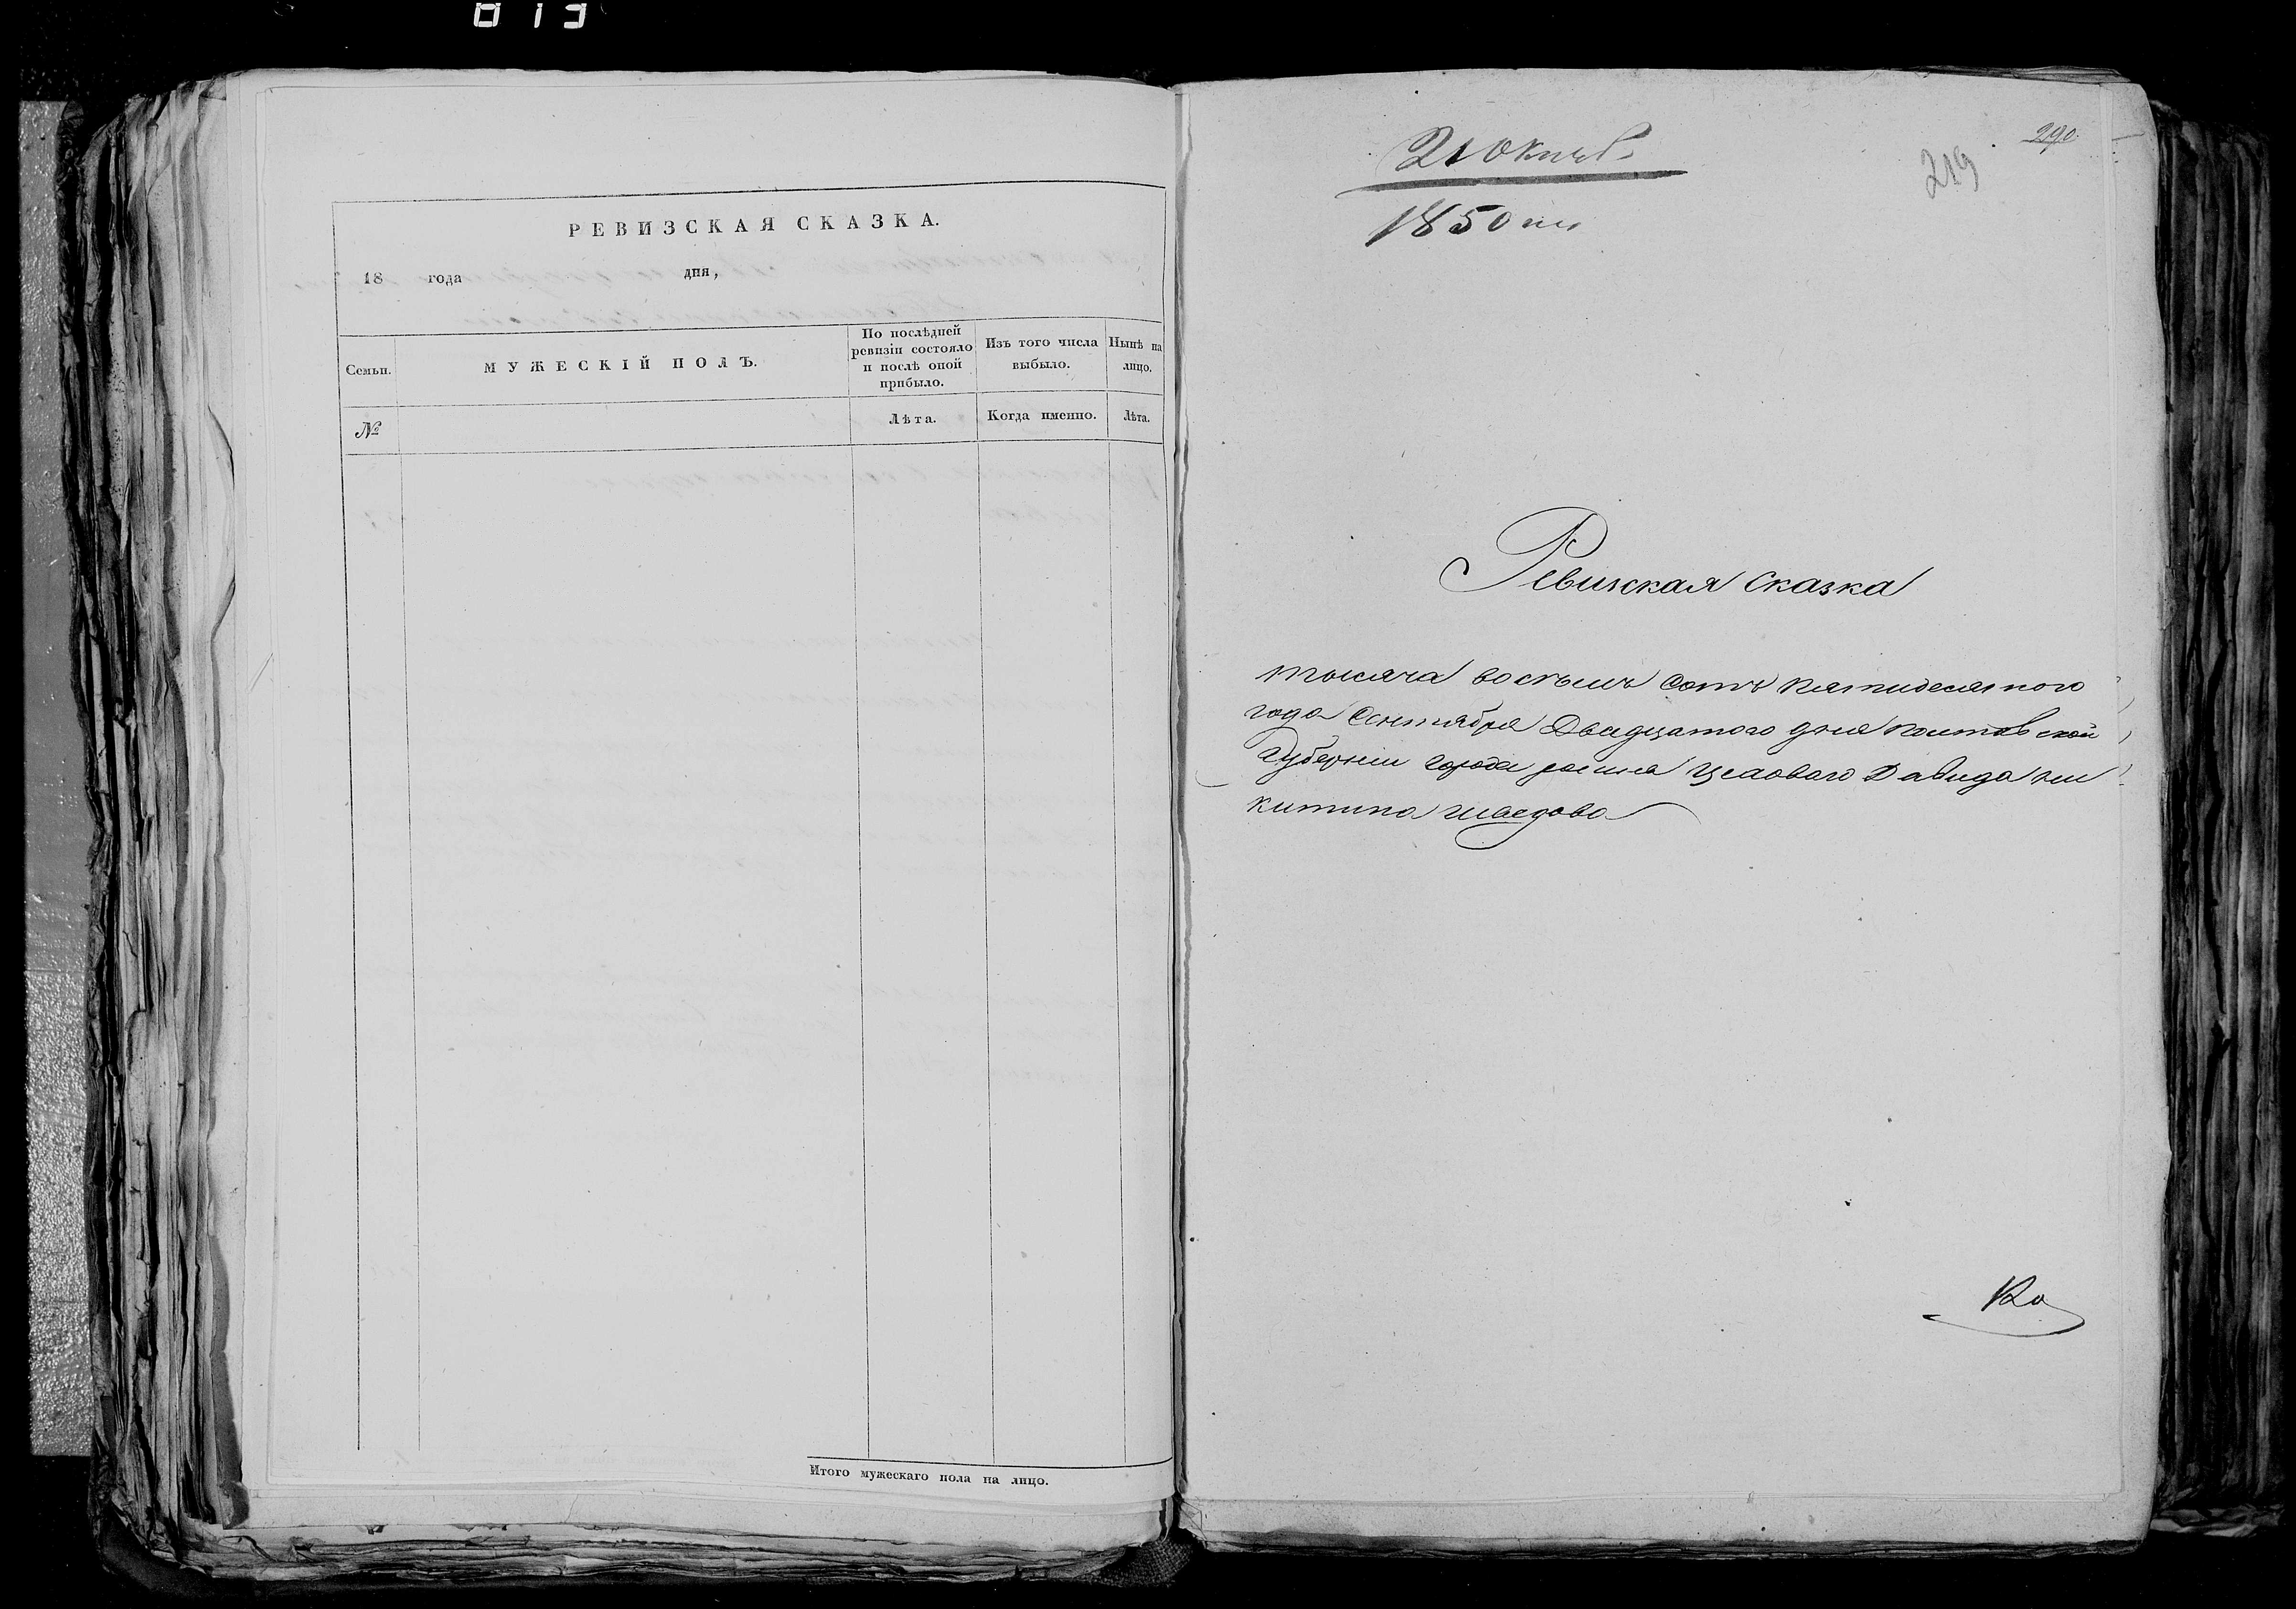 813
РЕВИЗСКАЯ СКАЗКА.
18 года дня,
Семьи.
МУЖЕСКІЙ ПОЛЪ.
По послѣдней ревизіи состояло и послѣ оной прибыло.
Изъ того числа выбыло.
Нынѣ на лицо.
№
Лѣта.
Когда именно.
Лѣта.
Итого мужескаго пола на лицо.
290.
219
21 Октяб.
1850
Ревизская сказка
тысяча восьмъ сотъ пятидесятого
года Сентября Двадцатого дня полтавской
Губернии города ромна цехового Давида ни
китина шведова